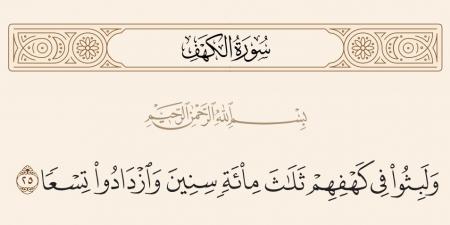 سُورَةُ الكَهْفِ
بِسْمِ اللَّهِ الرَّحْمَٰنِ الرَّحِيمِ
وَلَبِثُوا۟ فِى كَهْفِهِمْ ثَلَٰثَ مِا۟ئَةٍۢ سِنِينَ وَٱزْدَادُوا۟ تِسْعًۭا ٢٥